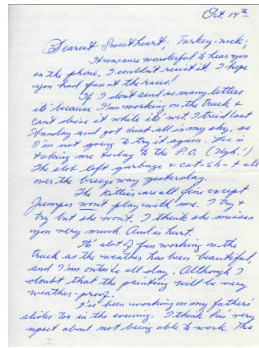 Oct. 14th
Dearest Sweetheart; Turkey-neck;
It was so wonderful to hear you
on the phone, I couldn't resist it. I hope
you had fun at the races!
If I don't send as many letters
it's because I'm working on the truck &
can't drive it while it's wet. I tried last
Sunday and got dust all in my
I'm not going to try it again. is
taking me today to the P.O. (Sigh!)
The left garbage & cat sh-t all
over the breezeway yesterday.
The Kitties are all fine except
Jumper won't play with me. I try &
try but she won't. I think she misses
you very much. And is hurt.
It's alot of fun working on the
truck as the weather has been beautiful
and I'm outside all day. Although I
doubt that the painting will be very
weather-proof.
I've been working on my fathers
slides too in the evening. I think he's very
upset about not being able to work. The